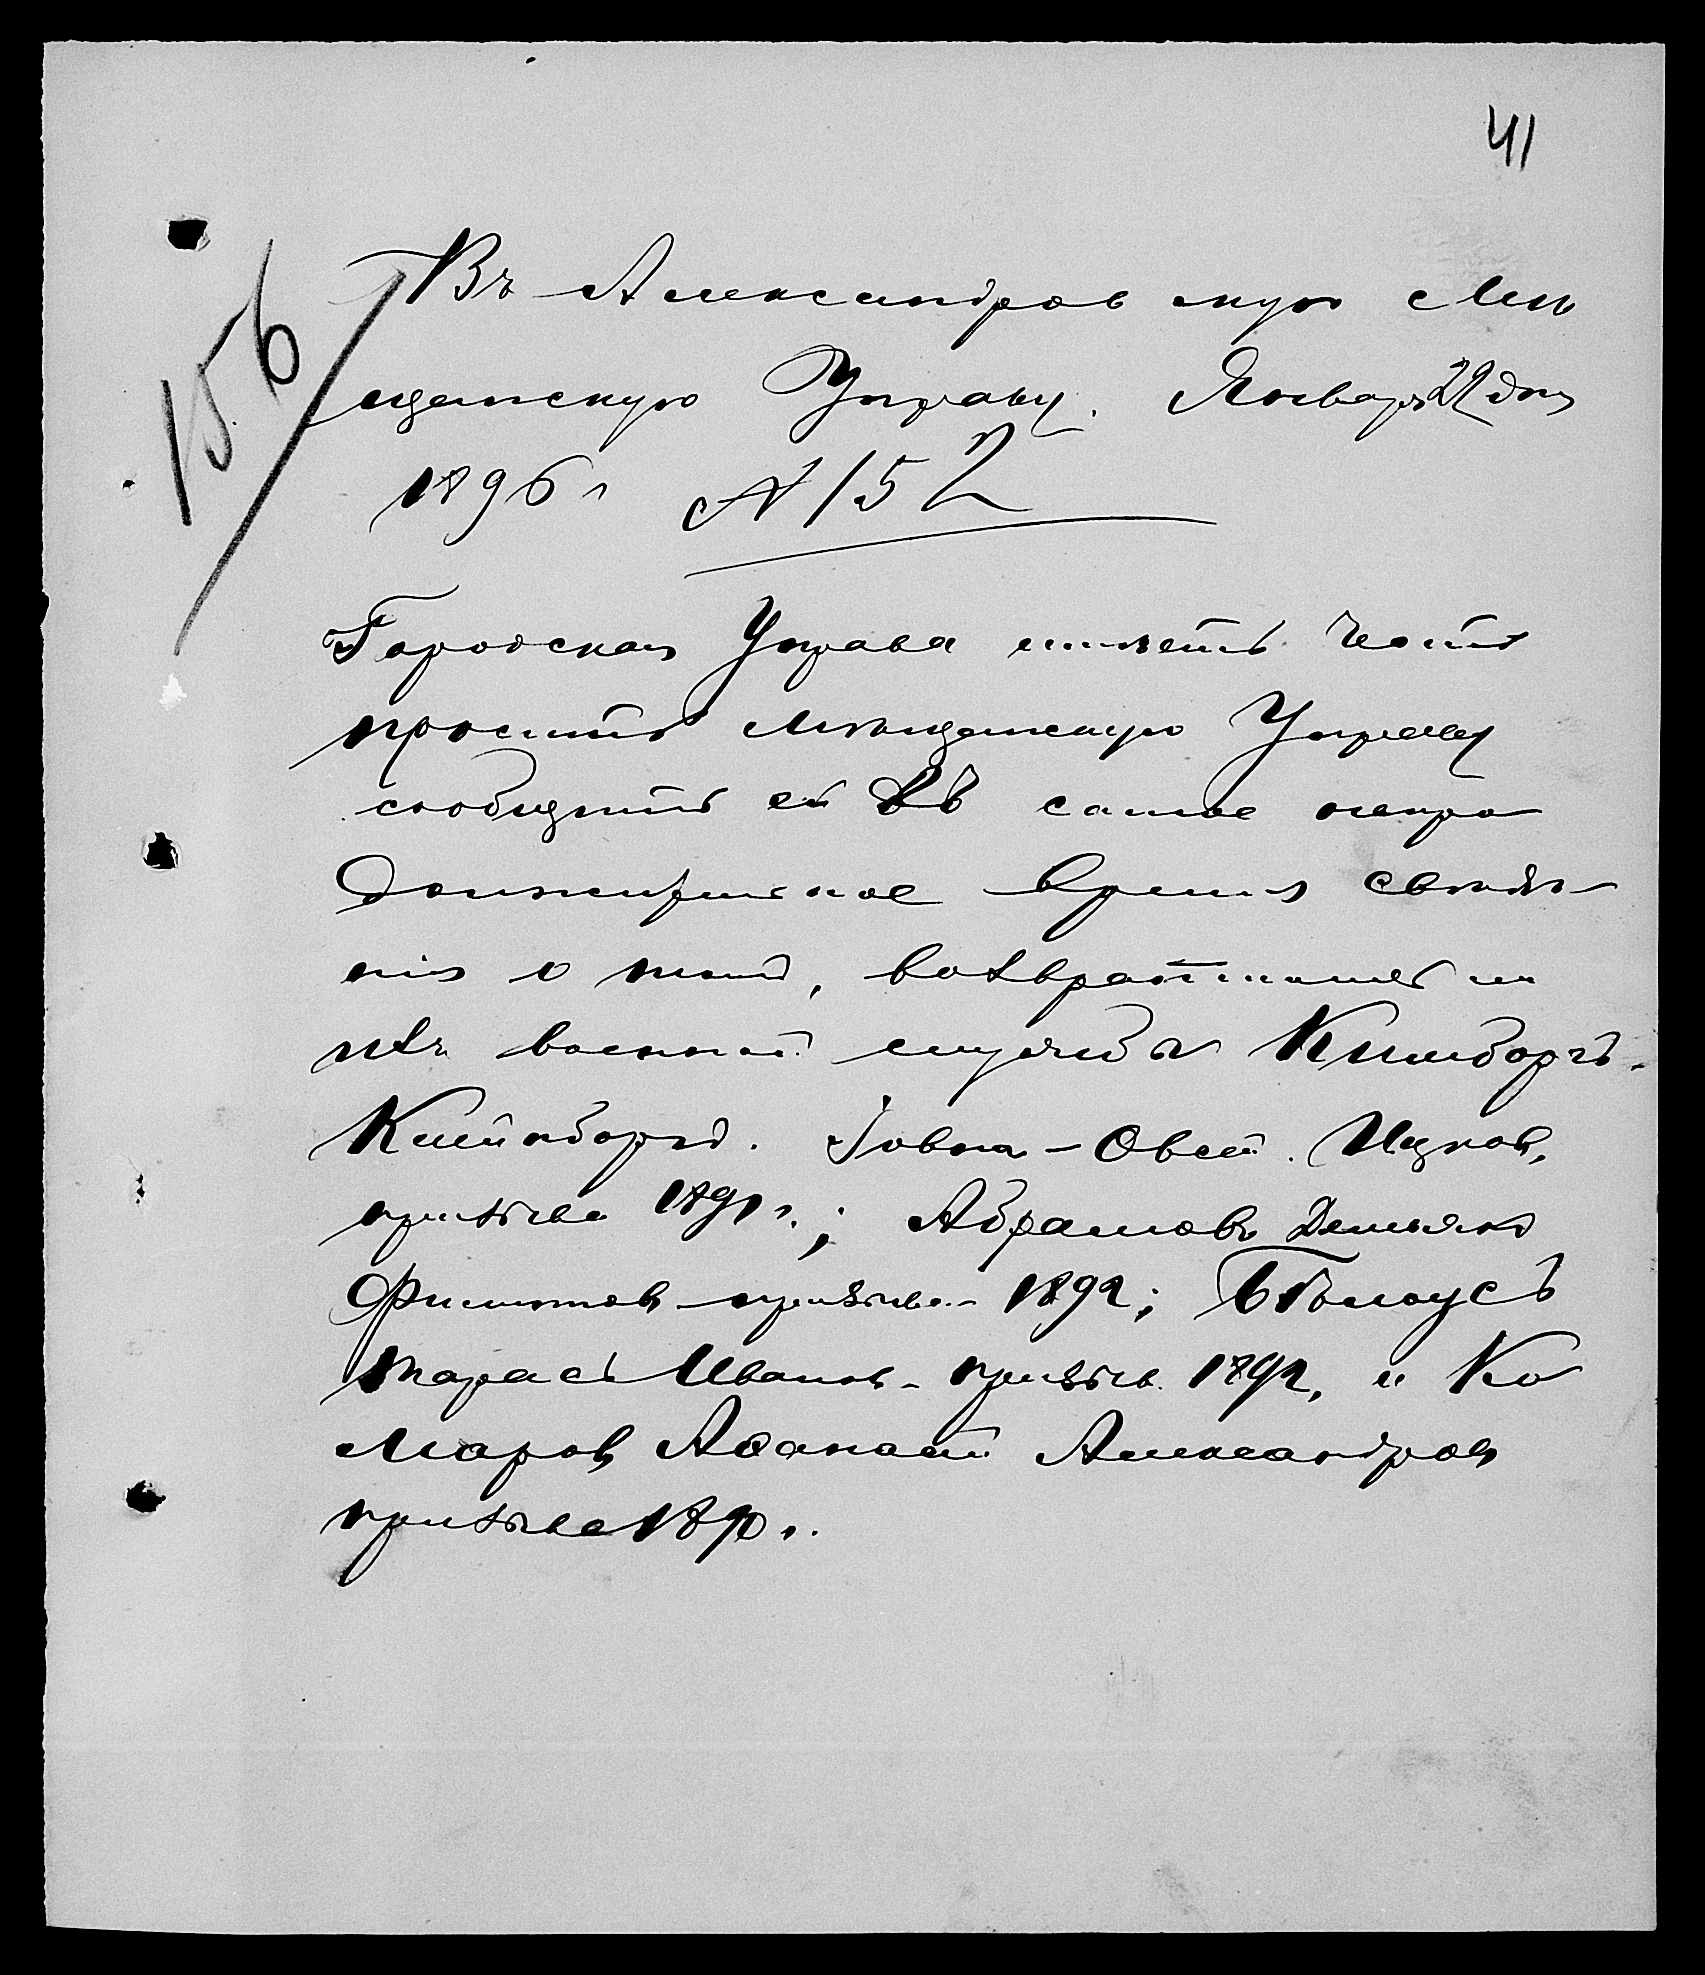 41
156
Въ Александровскую Мѣ
щанскую Управу. Января 22 дня
1896 г № 152
Городская Управа имѣетъ честь
просить Мѣщанскую Управу
сообщить ей въ самое непро
должительное время свѣдѣ-
нія о томъ, возвратились ли
изъ военной службы
Іовна-Овсей Ицков,
призыва 1891 г.; Абрамовъ Демьянъ
Филипов призыва 1892; Бѣлоусъ
Тарасъ Иванов. призыв. 1892, и Ко
маров Афанасій Александров
призыва 1890 г.